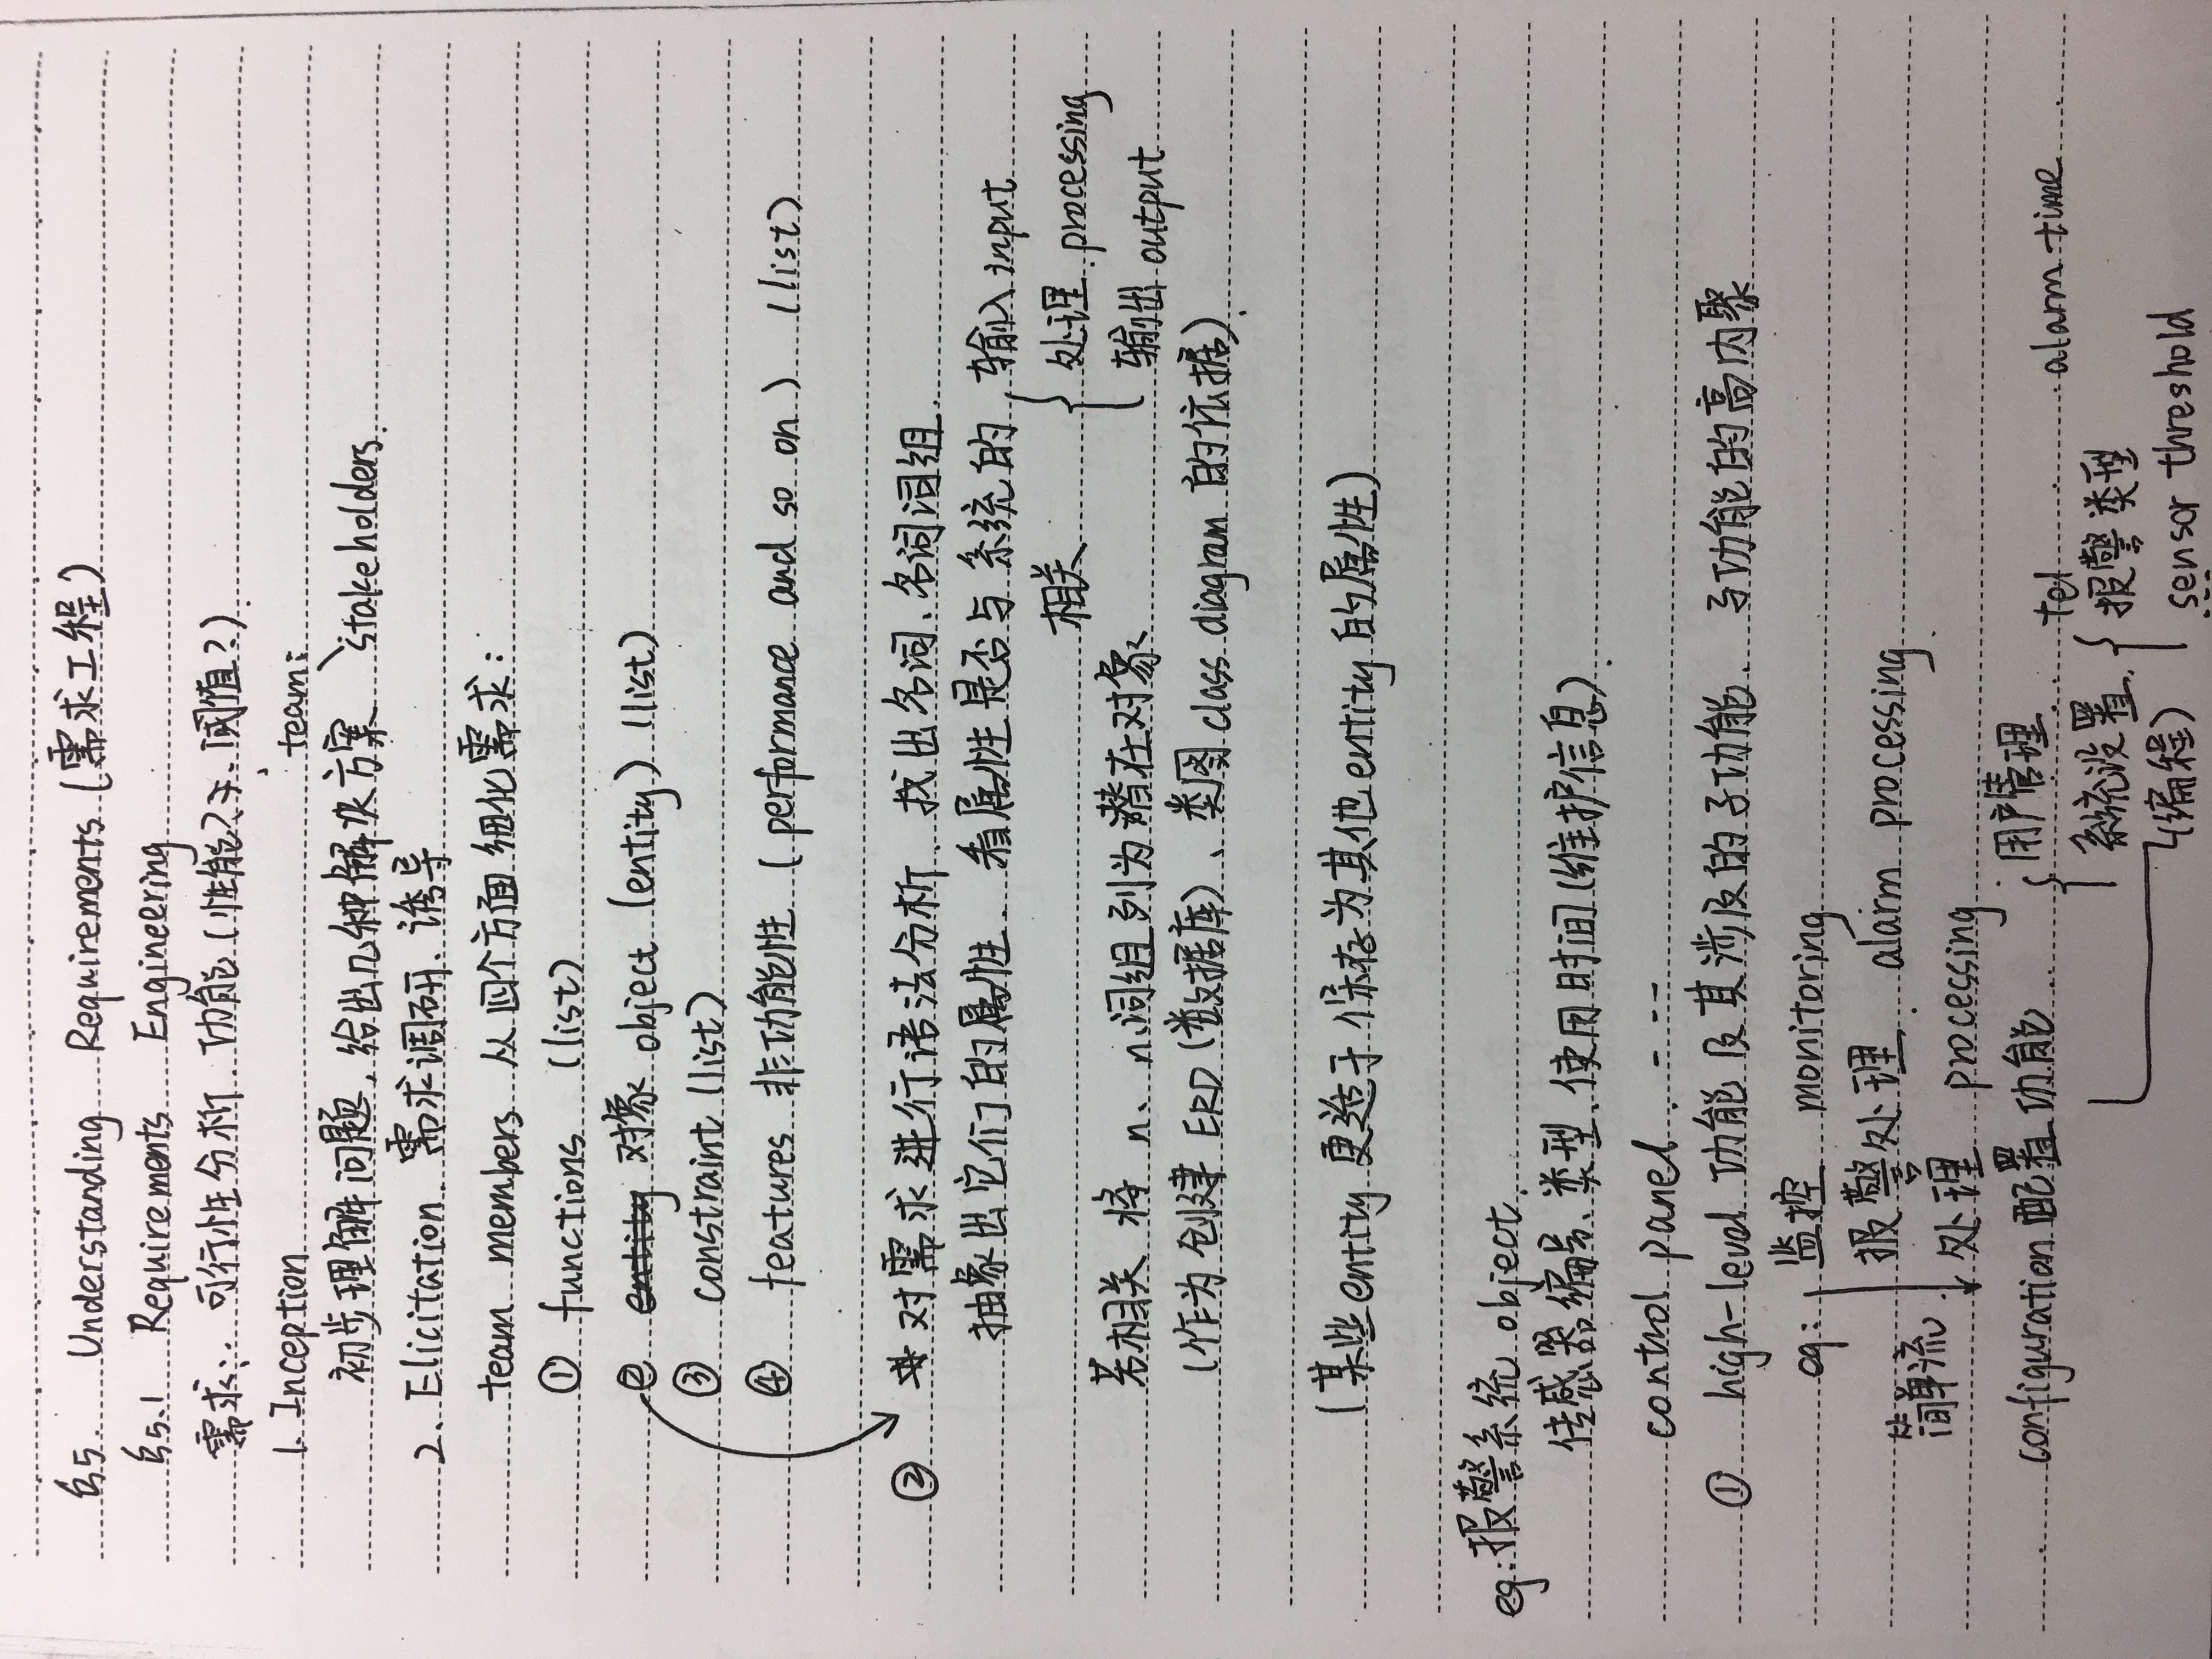 §5. Understanding Requirements (需求工程)
§5.1 Requirements Engineering
需求: 可行性分析、功能(性能?、阈值?)
1. Inception team:
初步理解问题, 给出几种解决方案 stakeholders.
2. Elicitation 需求调研、诱导
team members 从四个方面细化需求:
① functions (list)
② entity 对象 object (entity) (list)
③ constraint (list)
④ features 非功能性 (performance and so on) (list)
② 对需求进行语法分析、找出名词、名词词组.
抽象出它们的属性、看属性是否与系统的 输入 input
相关 处理 processing
若相关 将 n、n.词组列为潜在对象 输出 output
(作为创建 ERD (数据库)、类图 class diagram 的依据).
(某些entity 更适于保存为其他entity 的属性)
eg: 报警系统 object.
传感器编号、类型、使用时间(维护信息).
control panel . - - -
① high-level 功能及其涉及的子功能、子功能的高内聚
eg: 监控 monitoring
报警处理. alarm processing.
简单流
处理 processing
configuration 配置功能 用户管理
tel alarm time
系统设置 报警类型
(编程) sensor threshold